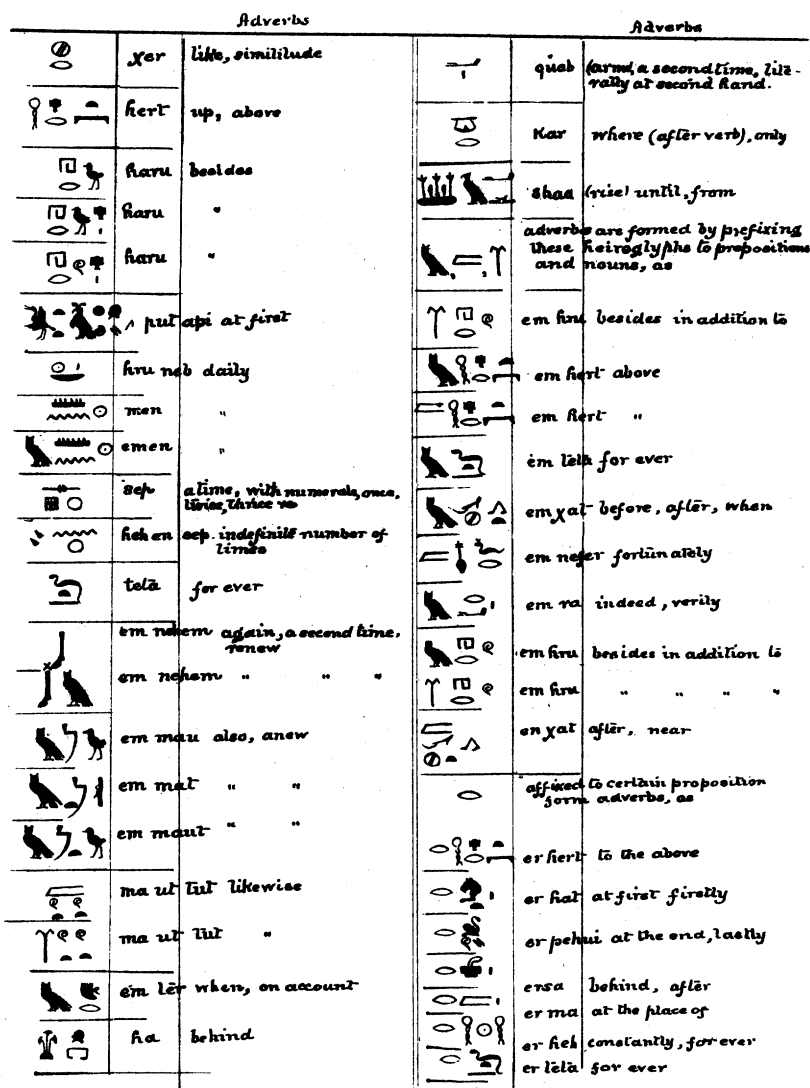 Adverbs
χer like, simililude
hert up, above
haru besides
haru "
haru "
put api at first
hru neb daily
men "
emen "
sep a time, with numerals, once,
twice, thrice
heh en sep. indefinite number of
times
tetā for ever
em nehem again, a second time,
renew
em nehem " " "
em mau also, anew
em mat " "
em maut " "
ma ut tut likewise
ma ut tut "
em ter when, on account
ha behind
Adverbs
quab (arm, a second time, lite-
rally at second hand.
Kar where (after verb), only
shaa (rise) until, from
adverbs are formed by prefixing
these heiroglyphs to prepositions
and nouns, as
em hru besides in addition to
em hert above
em hert "
em tetā for ever
em χat before, after, when
em nefer fortunately
em ra indeed, verily
em hru besides in addition to
em hru " " " "
en χat after, near
affixed to certain proposition
form adverbs, as
er hert to the above
er hat at first firstly
er pehui at the end, lastly
ersa behind, after
er ma at the place of
er heh constantly, for ever
er tetā for ever